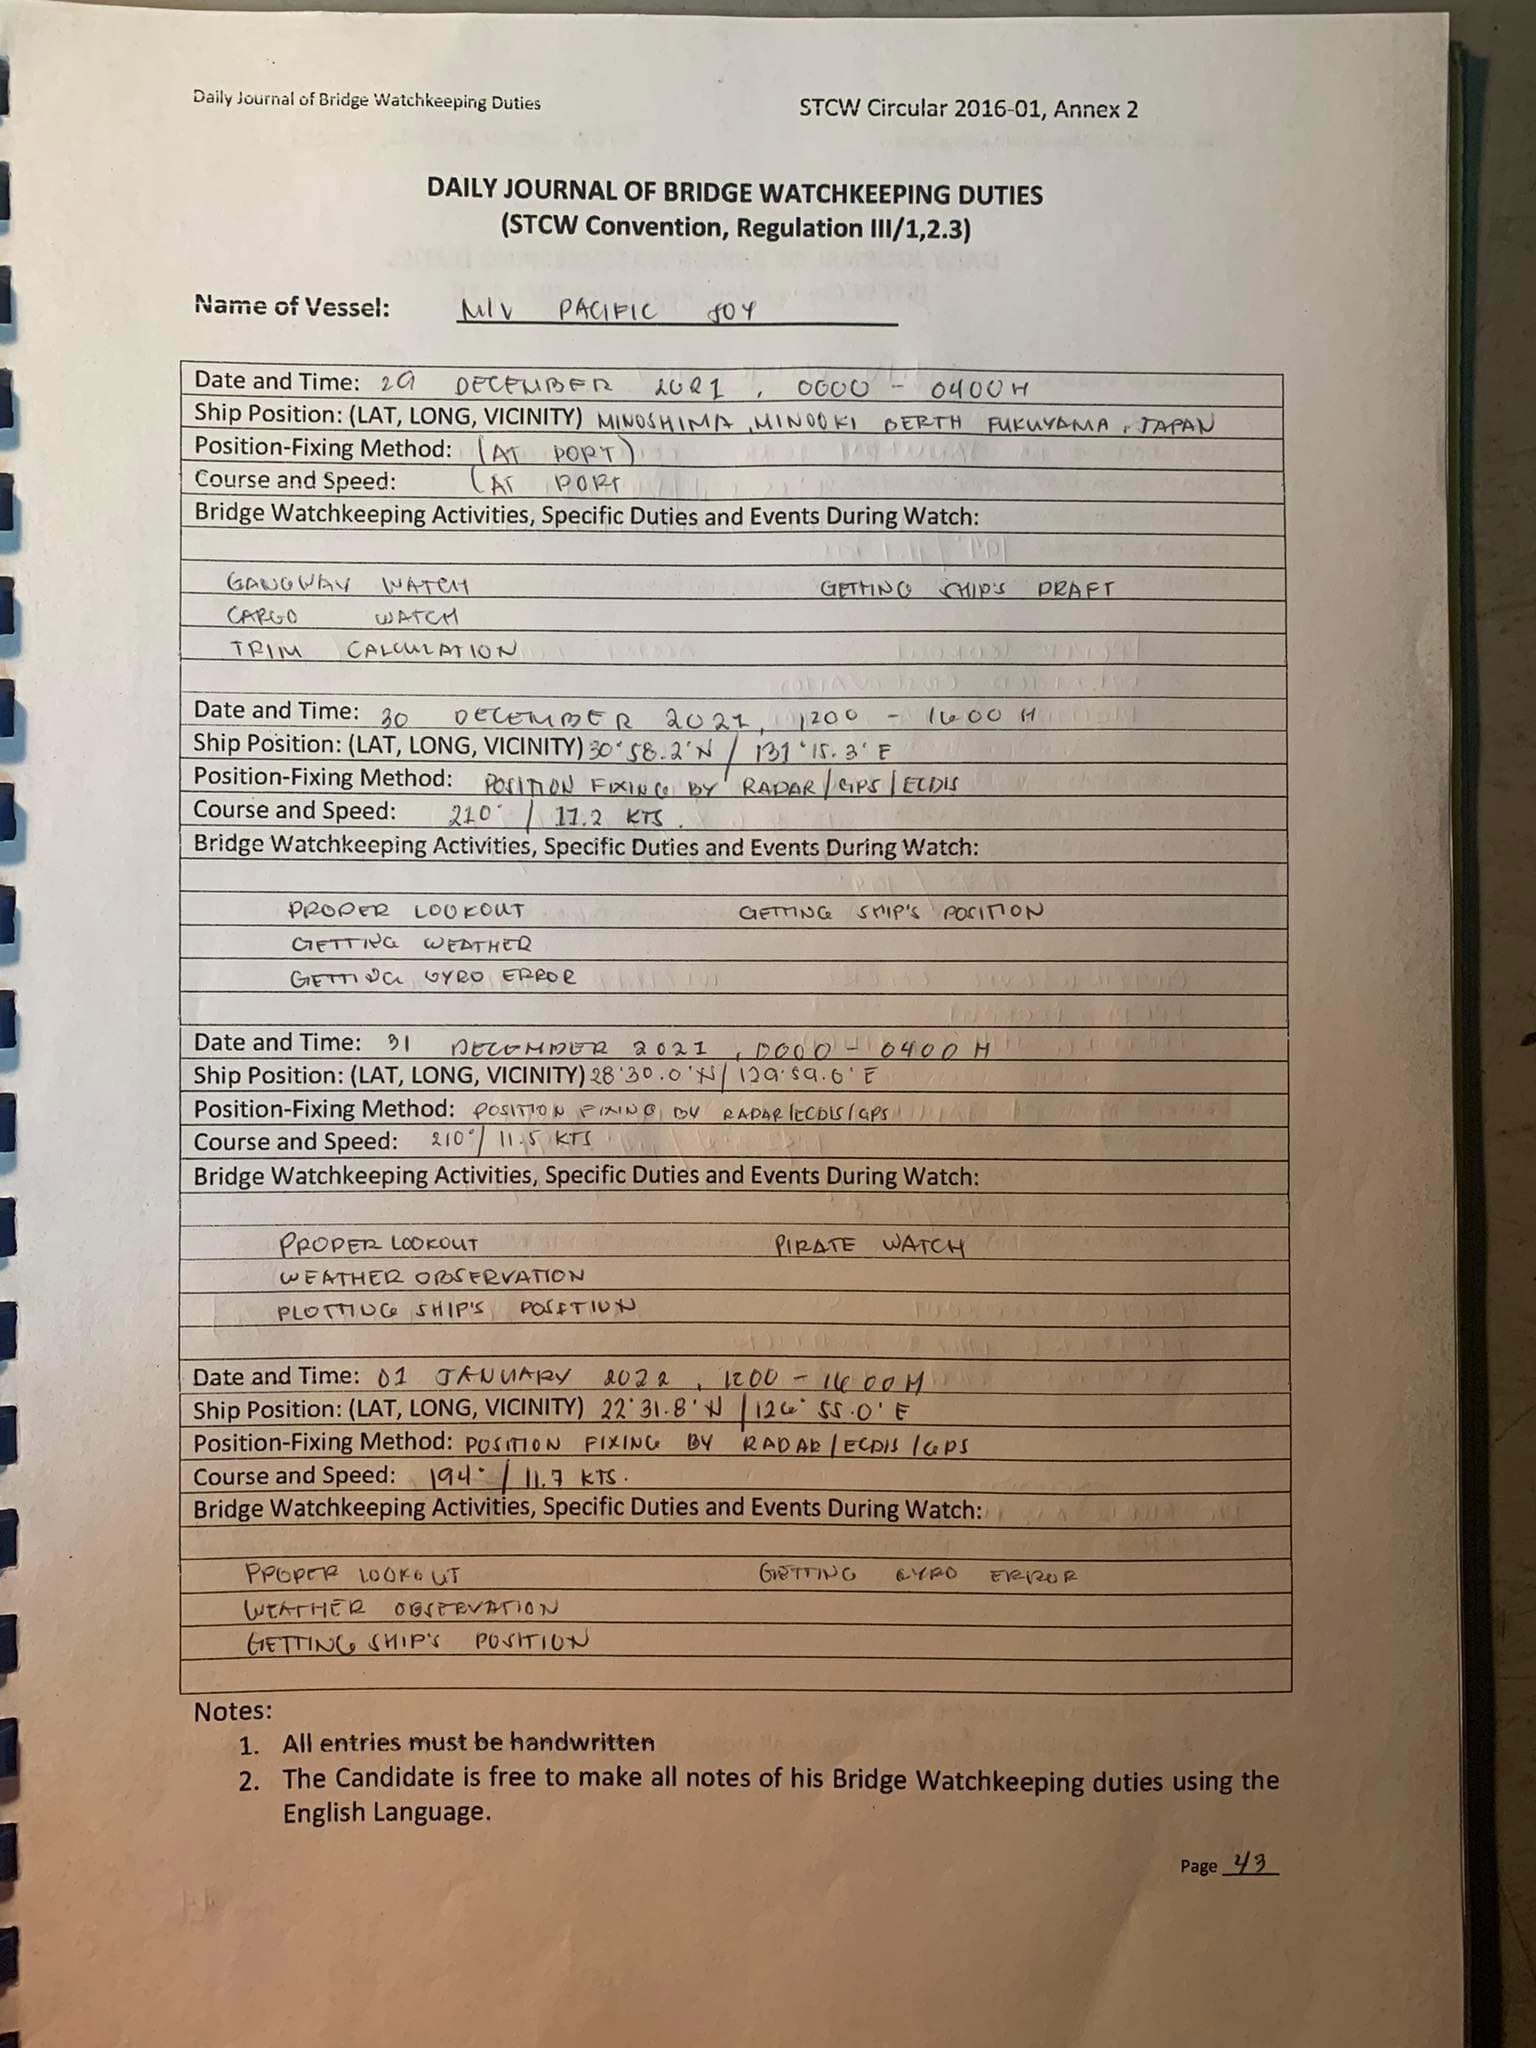 Daily Journal of Bridge Watchkeeping Duties
STCW Circular 2016-01, Annex 2
DAILY JOURNAL OF BRIDGE WATCHKEEPING DUTIES
(STCW Convention, Regulation III/1,2.3)
Name of Vessel: M/V PACIFIC JOY
Date and Time: 29 DECEMBER 2021, 0000 - 0400H
Ship Position: (LAT, LONG, VICINITY) MINOSHIMA, MINOOKI BERTH FUKUYAMA, JAPAN
Position-Fixing Method: (AT PORT)
Course and Speed: (AT PORT
Bridge Watchkeeping Activities, Specific Duties and Events During Watch:
GANGWAY WATCH GETTING SHIP'S DRAFT
CARGO WATCH
TRIM CALCULATION
Date and Time: 30 DECEMBER 2021, 1200 - 1600 H
Ship Position: (LAT, LONG, VICINITY) 30°58.2'N / 131°15.3'E
Position-Fixing Method: POSITION FIXING BY RADAR/GPS/ECDIS
Course and Speed: 210° / 11.2 KTS.
Bridge Watchkeeping Activities, Specific Duties and Events During Watch:
PROPER LOOKOUT GETTING SHIP'S POSITION
GETTING WEATHER
GETTING GYRO ERROR
Date and Time: 31 DECEMBER 2021, 0000 - 0400 H
Ship Position: (LAT, LONG, VICINITY) 28°30.0'N/ 129°59.6'E
Position-Fixing Method: POSITION FIXING BY RADAR/ECDIS/GPS
Course and Speed: 210°/ 11.5 KTS
Bridge Watchkeeping Activities, Specific Duties and Events During Watch:
PROPER LOOKOUT PIRATE WATCH
WEATHER OBSERVATION
PLOTTING SHIP'S POSITION
Date and Time: 01 JANUARY 2022, 1200 - 1600H
Ship Position: (LAT, LONG, VICINITY) 22°31.8'N / 126°55.0'E
Position-Fixing Method: POSITION FIXING BY RADAR/ECDIS/GPS
Course and Speed: 194° / 11.7 KTS.
Bridge Watchkeeping Activities, Specific Duties and Events During Watch:
PROPER LOOKOUT GETTING GYRO ERROR
WEATHER OBSERVATION
GETTING SHIP'S POSITION
Notes:
1. All entries must be handwritten
2. The Candidate is free to make all notes of his Bridge Watchkeeping duties using the
English Language.
Page 43